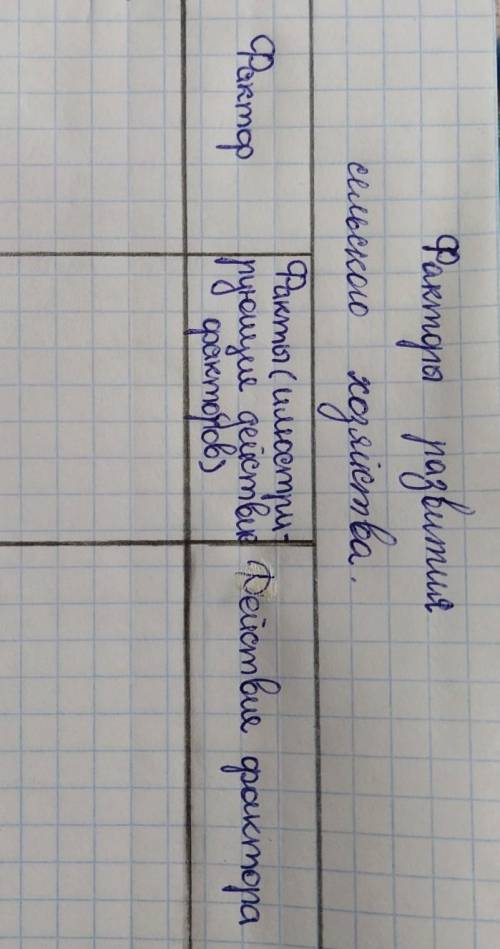 Факторы развития
сельского хозяйства.
Фактор
Факты (илюстри-
рующие действие
факторов)
Действия фактора